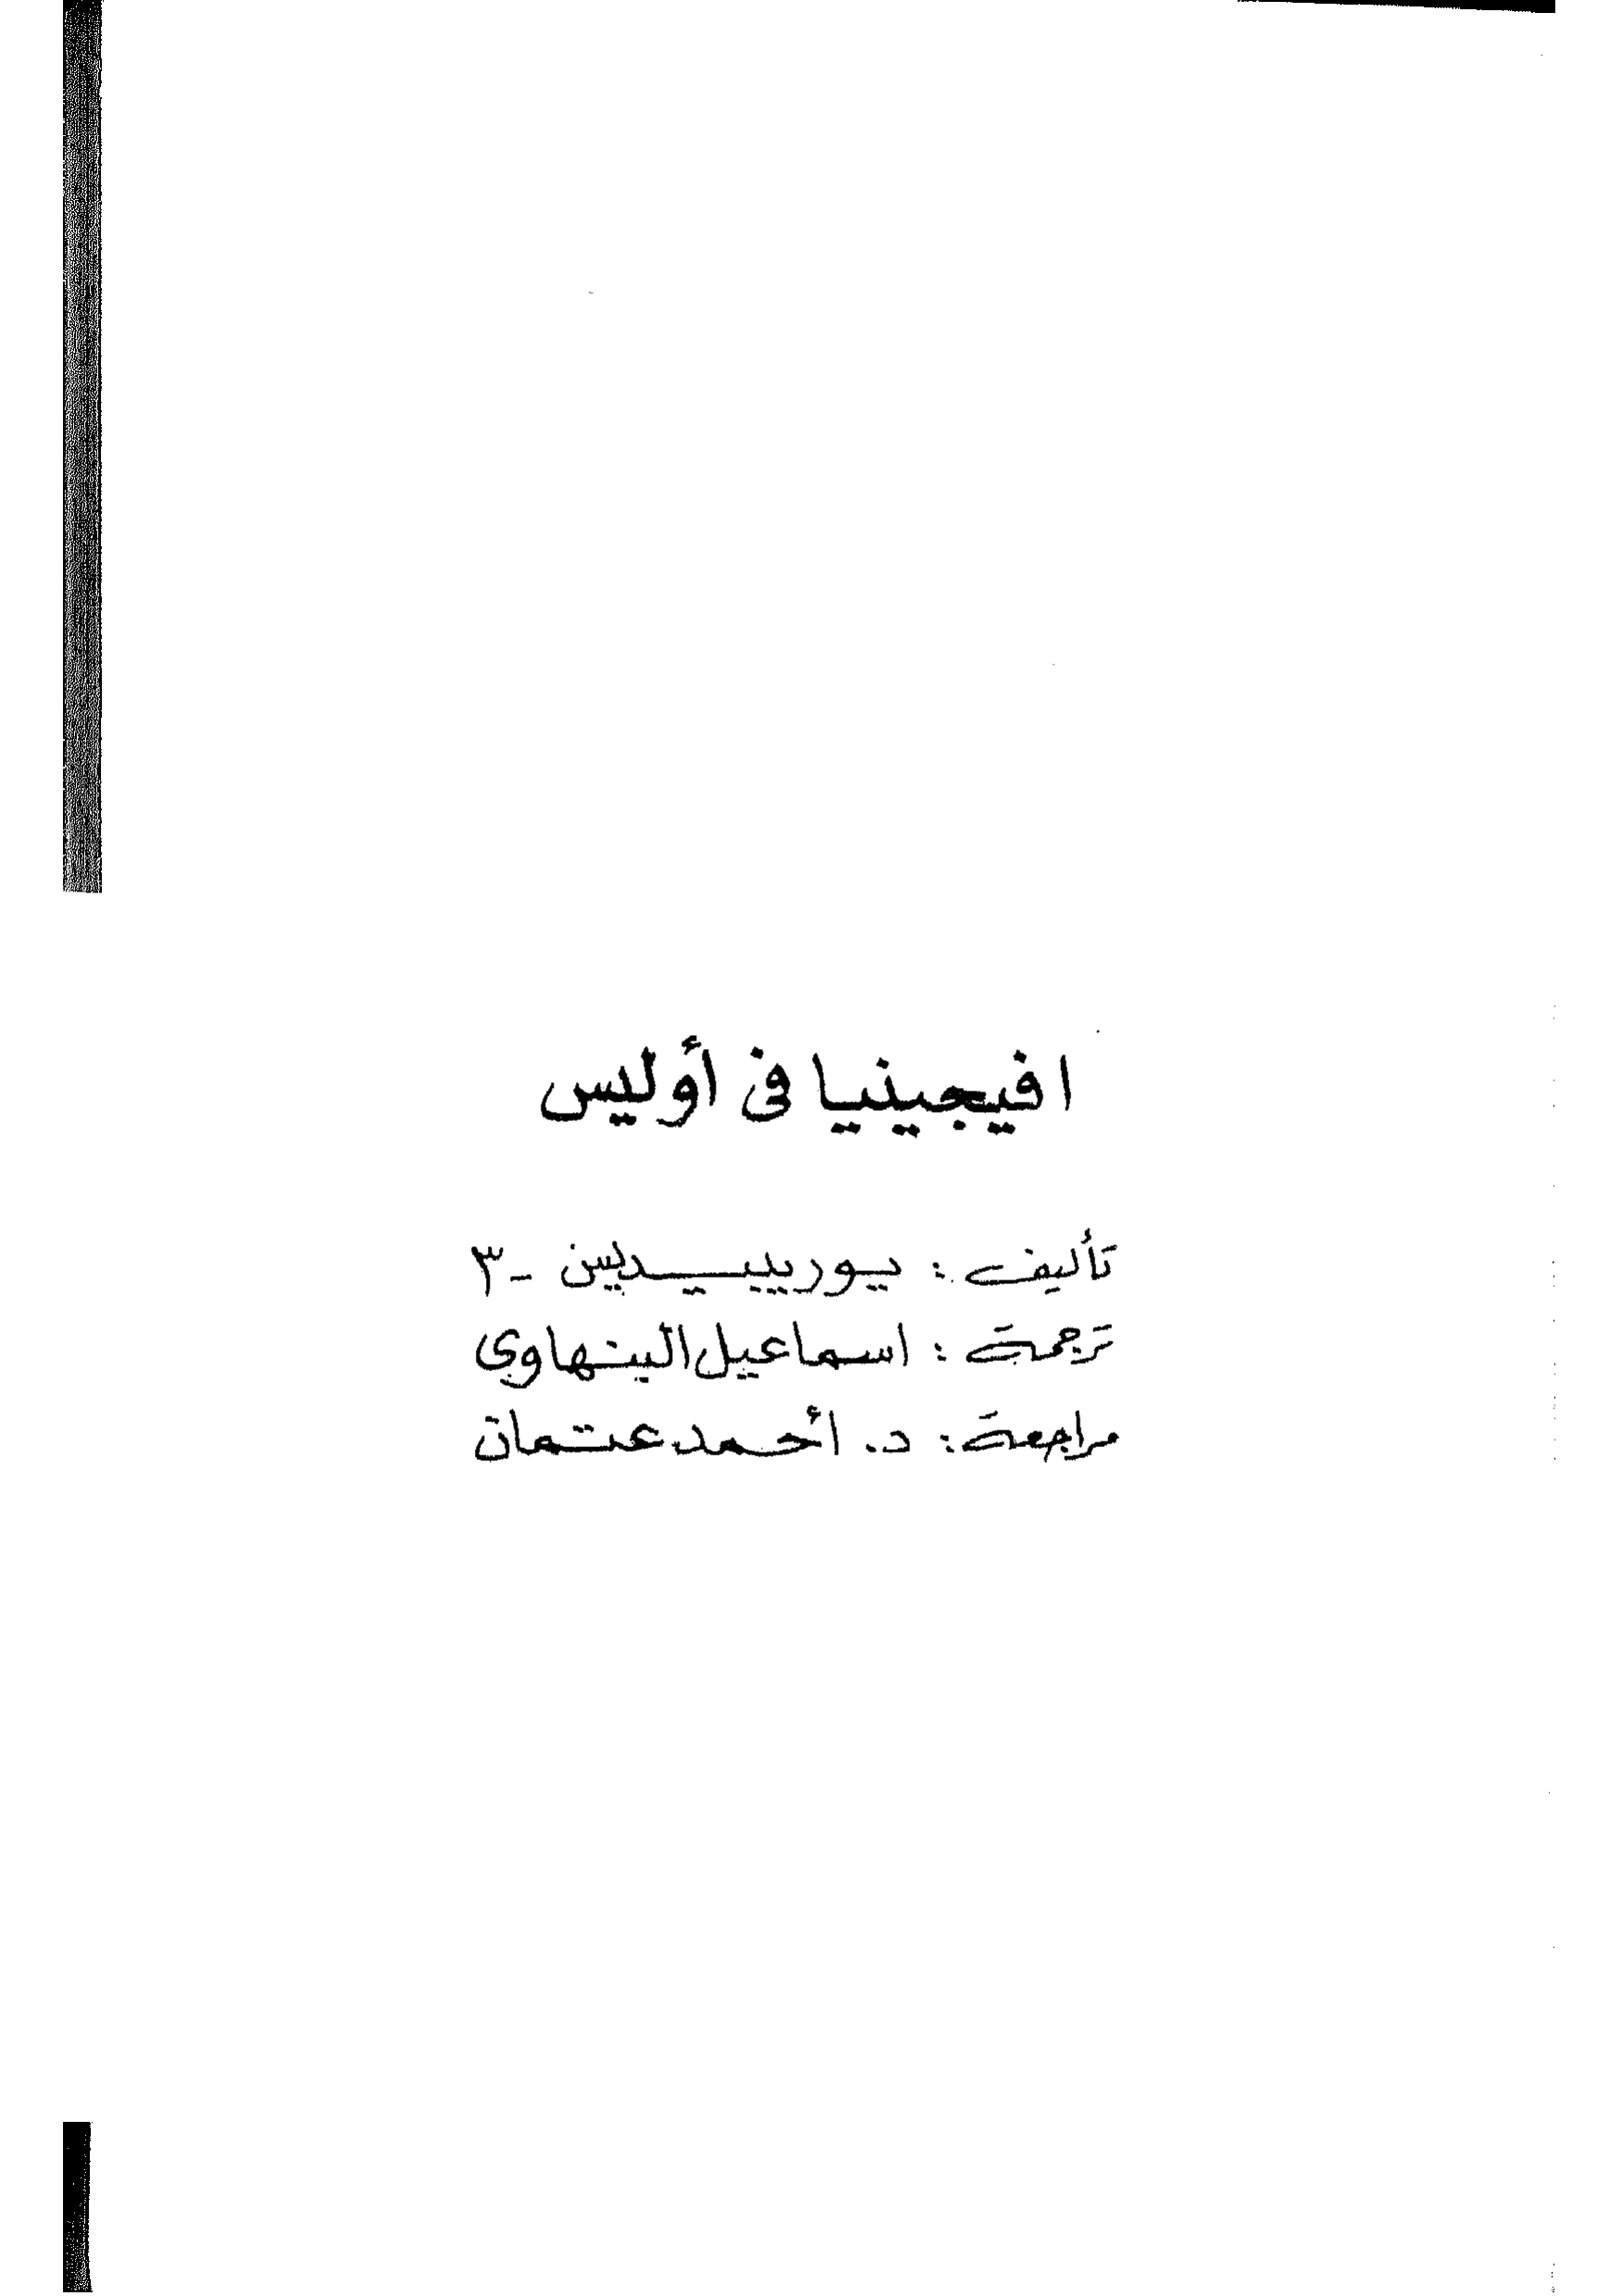 افيجينيا فى أوليس
تأليف : يوريبيديس - ٣
ترجمة : اسماعيل البنهاوى
مراجعة : د. أحمد عتمان